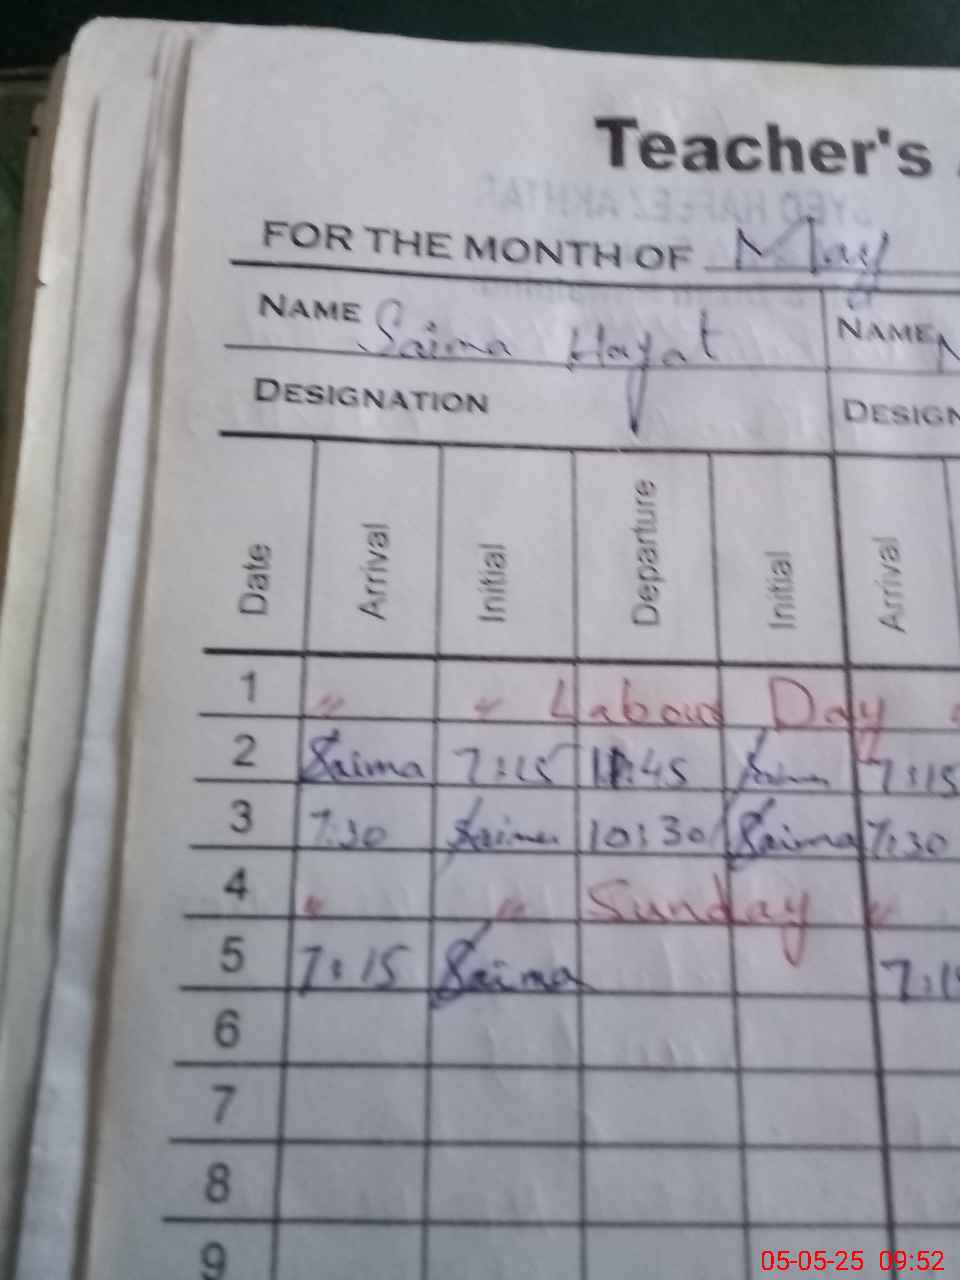 Teacher's
FOR THE MONTH OF May
NAME Saima Hayat NAME
DESIGNATION DESIGN
Date Arrival Initial Departure Initial Arrival
1 " " Labour Day "
2 Saima 7:15 11:45 Saima 7:15
3 7:30 Saima 10:30 Saima 7:30
4 " " Sunday "
5 7:15 Saima
6
7
8
9
05-05-25 09:52